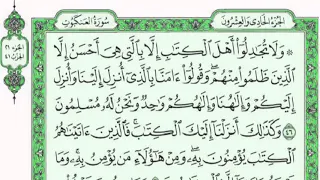 الجُزْءُ الحَادِى وَالعِشْرُونَ
سُورَةُ العَنكَبُوتِ
الجزء ٢١
الحزب ٤١
۞ وَلَا تُجَٰدِلُوٓا۟ أَهْلَ ٱلْكِتَٰبِ إِلَّا بِٱلَّتِى هِىَ أَحْسَنُ إِلَّا
ٱلَّذِينَ ظَلَمُوا۟ مِنْهُمْ ۖ وَقُولُوٓا۟ ءَامَنَّا بِٱلَّذِىٓ أُنزِلَ إِلَيْنَا وَأُنزِلَ
إِلَيْكُمْ وَإِلَٰهُنَا وَإِلَٰهُكُمْ وَٰحِدٌ وَنَحْنُ لَهُۥ مُسْلِمُونَ
٤٦ وَكَذَٰلِكَ أَنزَلْنَآ إِلَيْكَ ٱلْكِتَٰبَ ۚ فَٱلَّذِينَ ءَاتَيْنَٰهُمُ
ٱلْكِتَٰبَ يُؤْمِنُونَ بِهِۦ ۖ وَمِنْ هَٰٓؤُلَآءِ مَن يُؤْمِنُ بِهِۦ ۚ وَمَا